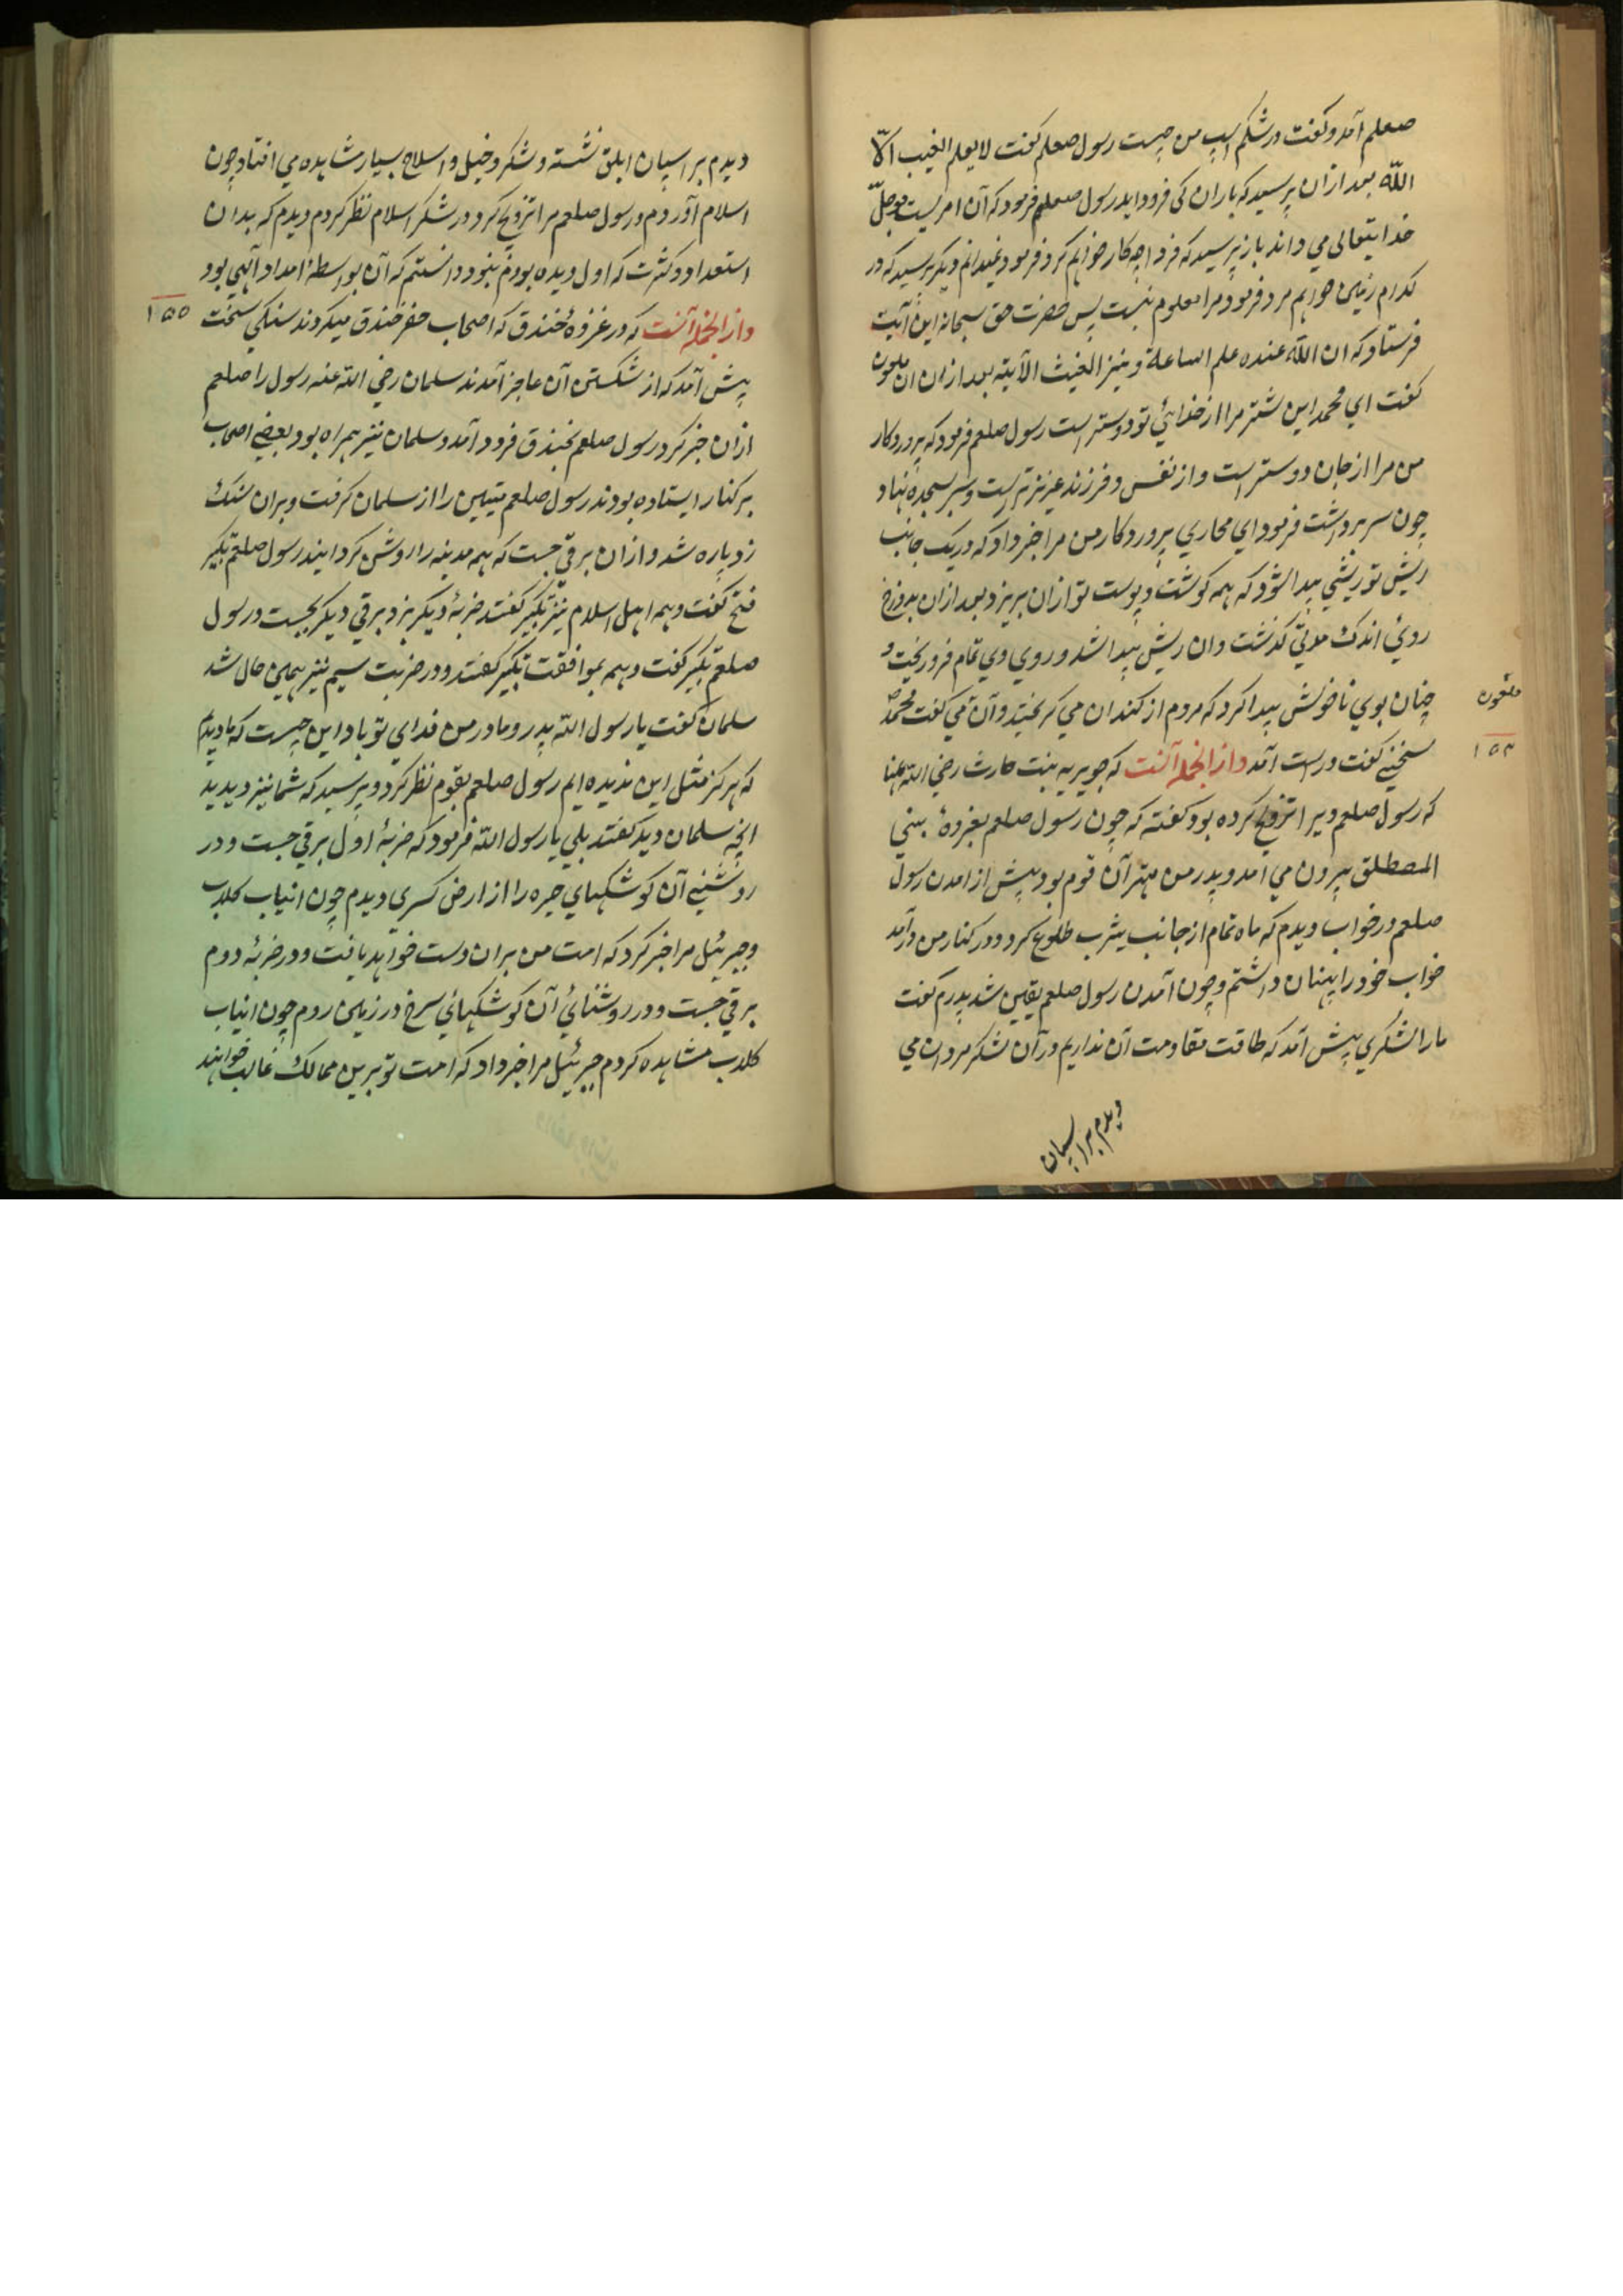 صعلم آمد و کفت در شکم اسپ من چیست رسول صعلم کفت لا یعلم الغیب الاّ
اللّه بعد ازان پرسید که باران کی فرود اید رسول صعلم فرمود که آن امریست
خدایتعالی می داند باز پرسید که فردا چه کار خواهم کرد فرمود نمیدانم دیکر پرسید که در
کدام زمین خواهم مرد فرمود مرا معلوم نیست پس حضرت حق سبحانه این آیت
فرستاد که ان اللّه عنده علم الساعة و ینزل الغیث الآیته بعد ازان ان ملعون
کفت ای محمد این شتر مرا از خدائی تو دوستر است رسول صلعم فرمود که پروردکار
من مرا از جان دوستر است و از نفس و فرزند عزیزتر است و سر بسجده نهاد
چون سر برداشت فرمود ای محاربی پروردکار من مرا خبر داد که در یک جانب
ریش تو ریشی پیدا شود که همه کوشت و پوست تو ازان بریزد بعد ازان بدوزخ
روئی اندک مدتی کذشت و ان ریش پیدا شد و روی وی تمام فرو ریخت و
چنان بوی ناخوش پیدا کرد که مردم از کند ان می کریختند و آن می کفت محمد
ملعون
سخنی کفت و راست آمد و از انجمله آنست که جویریه بنت حارث رضی اللّه عنها
۱۵۴
که رسول صلعم ویرا تزویج کرده بود کفته که چون رسول صلعم بغزوهٔ بنی
المصطلق بیرون می امد و پدر من مهتر آن قوم بود پیش از امدن رسول
صلعم در خواب دیدم که ماه تمام از جانب یثرب طلوع کرد و در کنار من درآمد
خواب خود را پنهان داشتم و چون آمدن رسول صلعم یقین شد پدرم کفت
مارا لشکری پیش آمد که طاقت مقاومت آن نداریم در آن لشکر مردان می
دیدم بر اسپان
دیدم بر اسپان ابلق نشسته و لشکر و خیل و اسلاح بسیار مشاهده می افتاد چون
اسلام آوردم و رسول صلعم مرا تزویج کرد در لشکر اسلام نظر کردم دیدم که بدان
استعداد و کثرت که اول دیده بودم نبود دانستم که آن بواسطهٔ امداد آلهی بود
و از انجمله آنست که در غزوهٔ خندق که اصحاب حفر خندق میکردند سنکی سخت
۱۵۵
پیش آمد که از شکستن آن عاجز آمدند سلمان رضی اللّه عنه رسول را صلعم
ازان خبر کرد رسول صلعم بخندق فرود آمد و سلمان نیز همراه بود بعضی اصحاب
بر کنار ایستاده بودند رسول صلعم میتین را از سلمان کرفت و بران سنک
زد پاره شد و ازان برقی جست که همه مدینه را روشن کردانید رسول صلعم تکبیر
فتح کفت و همه اهل اسلام نیز تکبیر کفتند ضربهٔ دیکر بزد برقی دیکر بجست و رسول
صلعم تکبیر کفت و همه بموافقت تکبیر کفتند و در ضربت سیم نیز همین حال شد
سلمان کفت یا رسول اللّه پدر و مادر من فدای تو باد این چیست که ما دیدیم
که هرکز مثل این ندیده ایم رسول صلعم بقوم نظر کرد و پرسید که شما نیز دیدید
انچه سلمان دید کفتند بلی یا رسول اللّه فرمود که ضربهٔ اول برقی جست و در
روشنیٔ آن کوشکهای حیره را از ارض کسری دیدم چون انیاب کلاب
و جبرئیل مرا خبر کرد که امت من بران دست خواهد یافت و در ضربهٔ دوم
برقی جست و در روشنائی آن کوشکهائی سرخ در زمین روم چون انیاب
کلاب مشاهده کردم جبرئیل مرا خبر داد که امت تو برین ممالک غالب خواهند